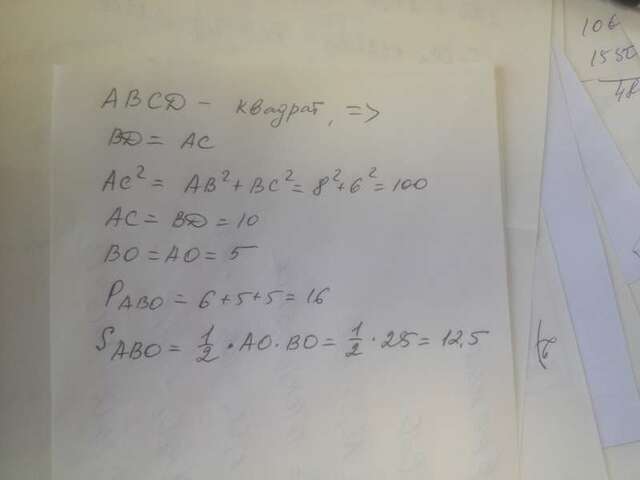 ABCD - квадрат, =>
BD = AC
AC² = AB² + BC² = 8² + 6² = 100
AC = BD = 10
BO = AO = 5
P ABO = 6 + 5 + 5 = 16
S ABO = 1/2 · AO · BO = 1/2 · 25 = 12,5
106